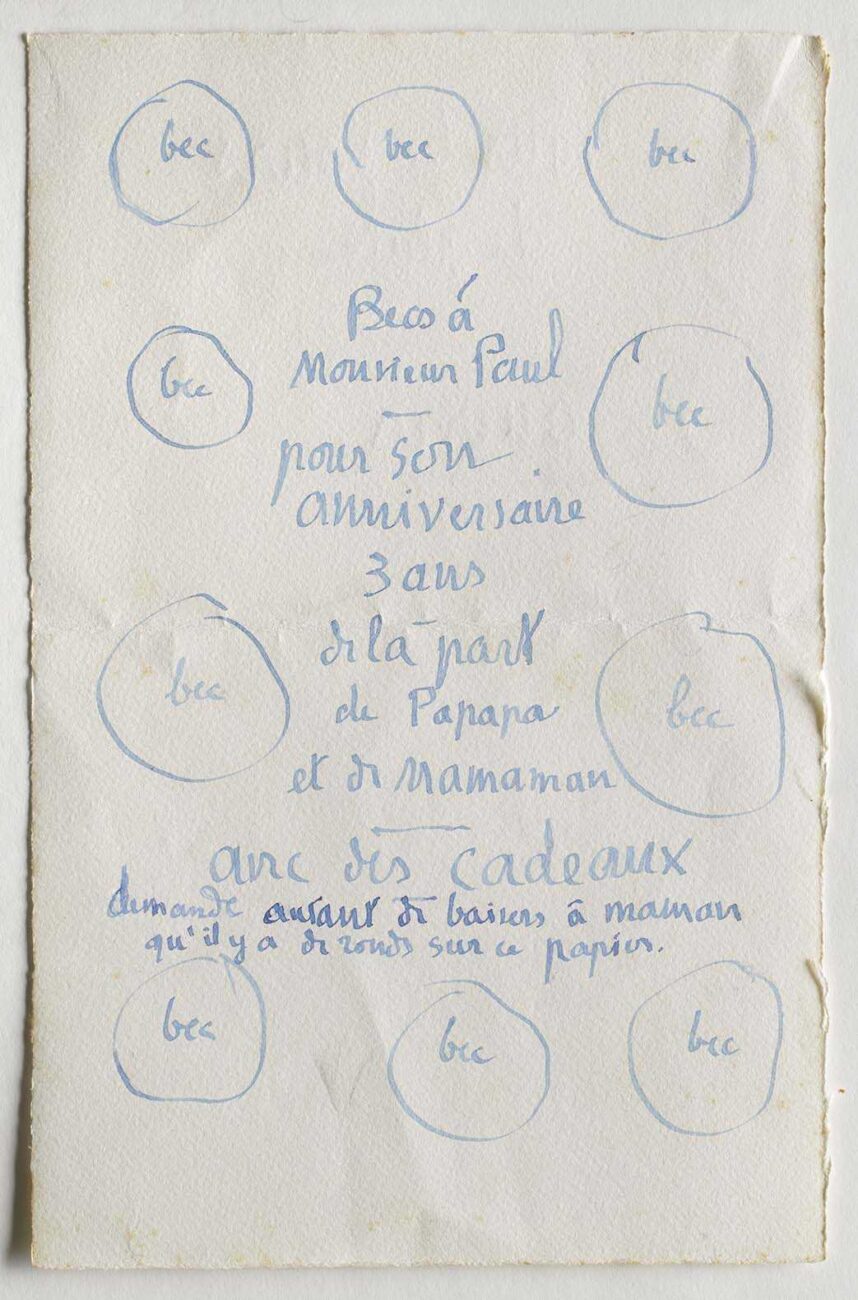 bec bec bec
Becs à
Monsieur Paul
bec bec
pour son
anniversaire
3 ans
de la part
bec bec
de Papapa
et de Mamaman
avec des cadeaux
demande autant de baisers à maman
qu'il y a de ronds sur ce papier.
bec bec bec